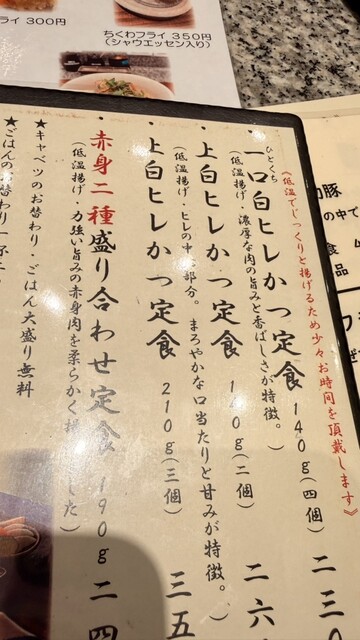 ライ 300円
ちくわフライ 350円
(シャウエッセン入り)
(低温でじっくりと揚げるため少々お時間を頂戴します。)
ひとくち
・一口白ヒレかつ定食 140g(四個) 二三
(低温揚げ・濃厚な肉の旨みと香ばしさが特徴。)
・上白ヒレかつ定食 140g(二個) 二六
(低温揚げ・ヒレの中心部分。まろやかな口当たりと甘みが特徴。)
・上白ヒレかつ定食 210g(三個) 三五
・赤身二種盛り合わせ定食 190g 二四
(低温揚げ・力強い旨みの赤身肉を柔らかく揚
した)
★キャベツのお替わり・ごはん大盛り無料
★ごはんのお替わり一杯
豚
の中で
食
品